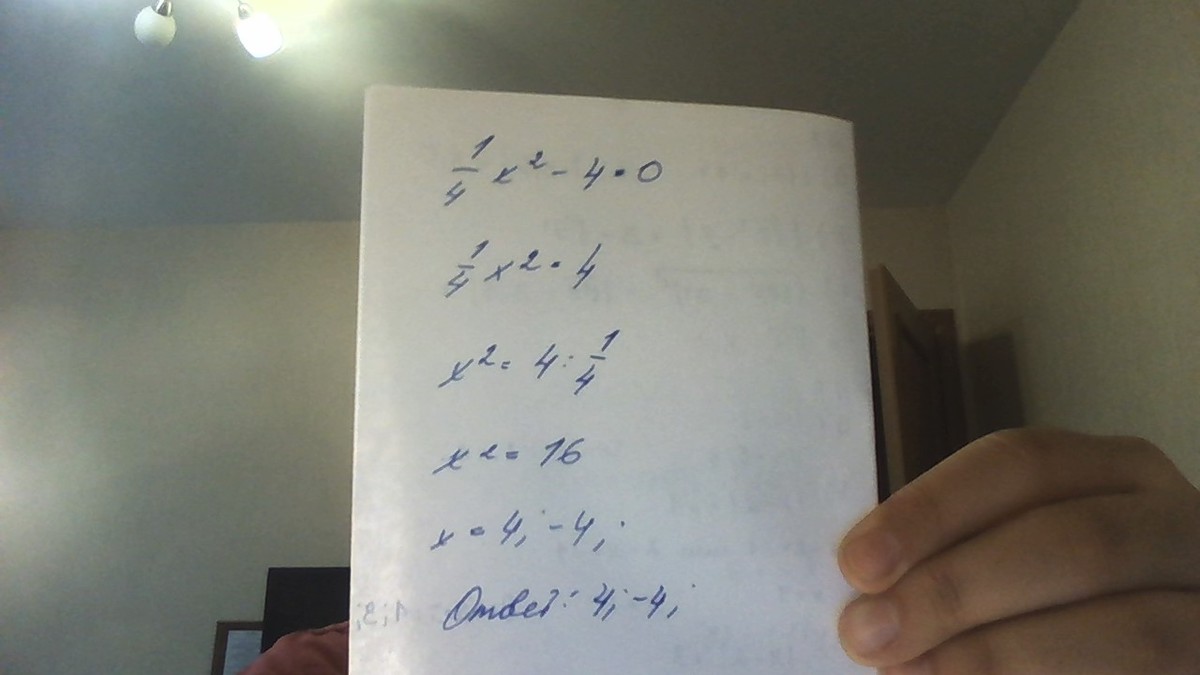 1/4 x² - 4 = 0
1/4 x² = 4
x² = 4 : 1/4
x² = 16
x = 4; -4;
Ответ: 4; -4;